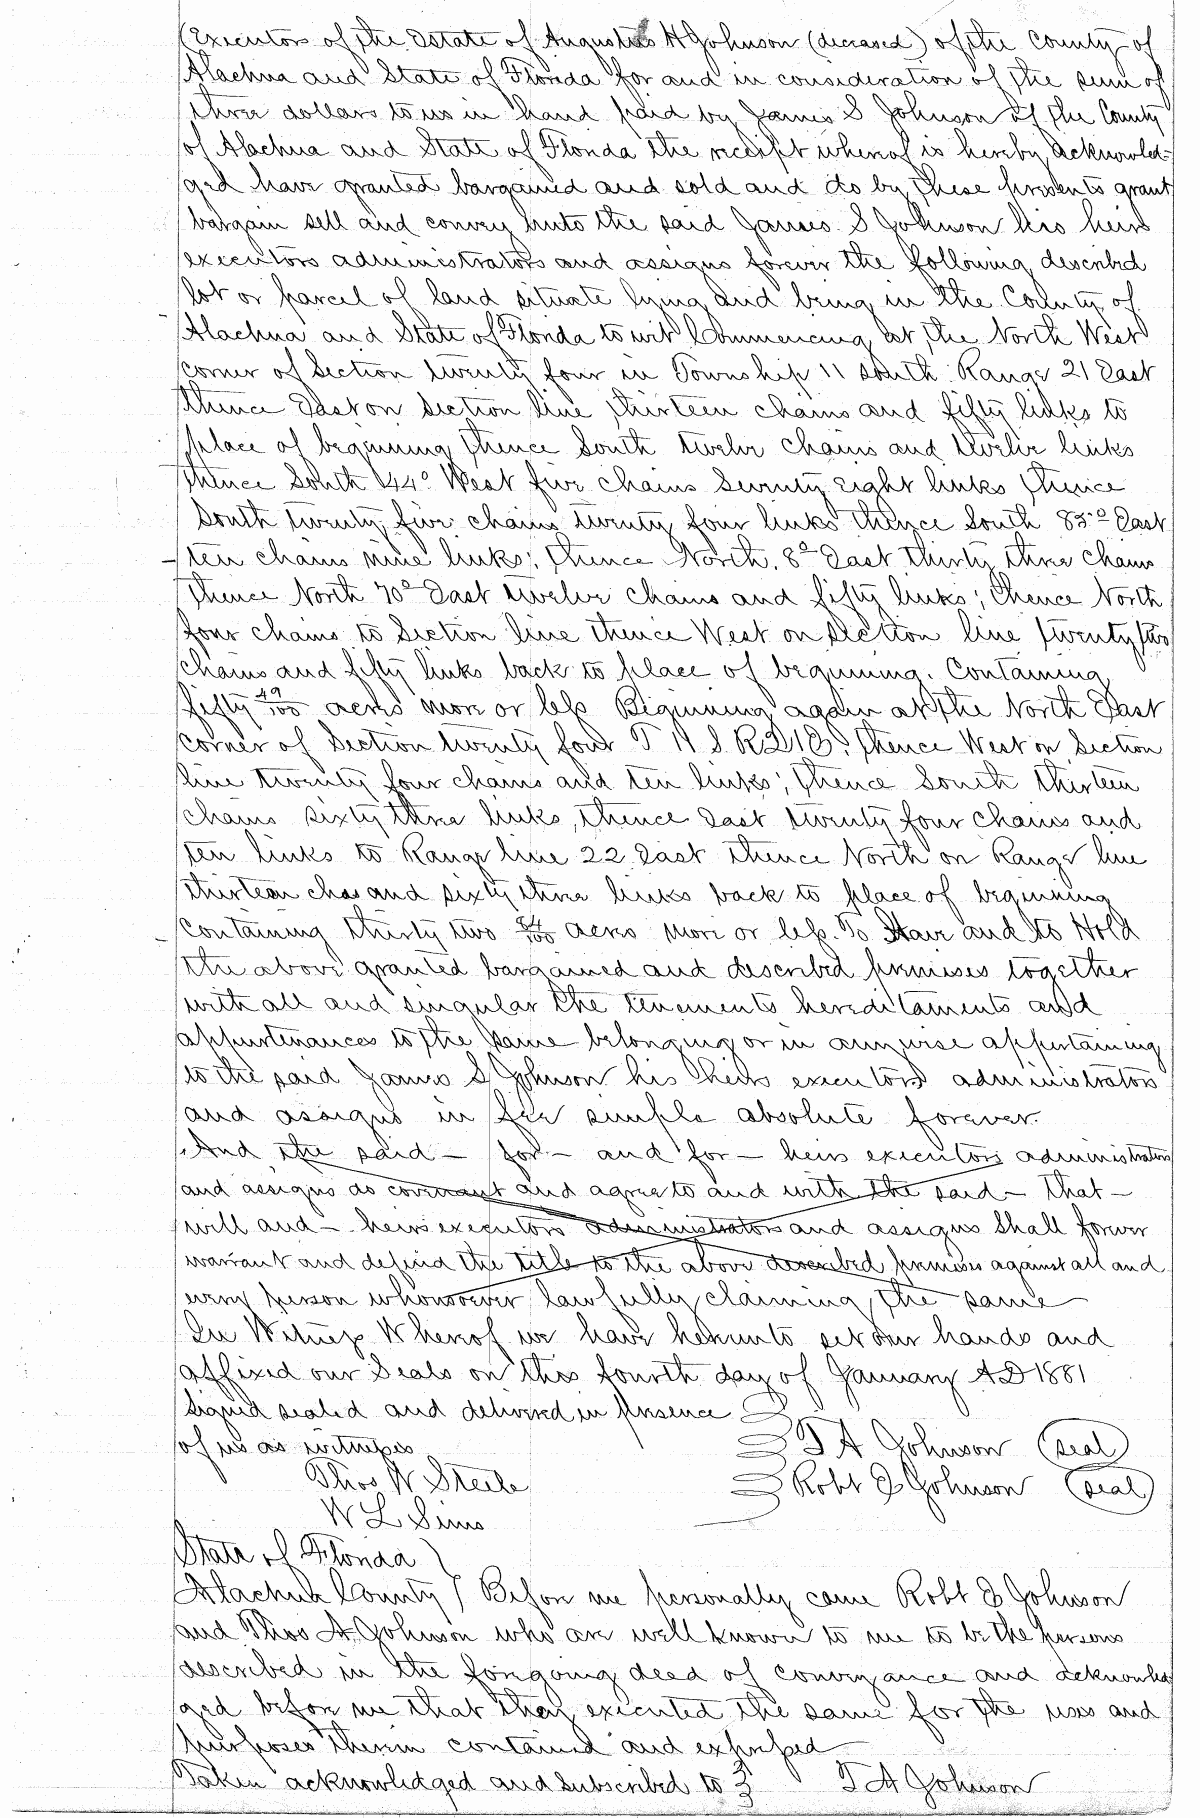 (Executors of the Estate of Augustus H Johnson (deceased) of the County of
Alachua and State of Florida for and in consideration of the sum of
three dollars to us in hand paid by James S Johnson of the County
of Alachua and State of Florida the receipt whereof is hereby acknowled-
ged have granted bargained and sold and do by these presents grant
bargain sell and convey unto the said James S Johnson his heirs
executors administrators and assigns forever the following described
lot or parcel of land situate lying and being in the County of
Alachua and State of Florida to wit Commencing at the North West
corner of Section twenty four in Township 11 South Range 21 East
thence East on Section line thirteen chains and fifty links to
place of beginning thence South twelve chains and twelve links
thence South 44° West five chains Seventy eight links thence
South twenty five chains twenty four links thence South 85° East
ten chains nine links; thence North 8° East thirty three chains
thence North 70° East twelve chains and fifty links; thence North
four chains to Section line thence West on Section line twenty two
chains and fifty links back to place of beginning. Containing
fifty 49/100 acres more or less Beginning again at the North East
corner of Section twenty four T 11 S R 21 E; thence West on Section
line twenty four chains and ten links; thence South thirteen
chains sixty three links, thence East twenty four chains and
ten links to Range line 22 East thence North on Range line
thirteen chs and sixty three links back to place of beginning
containing thirty two 84/100 acres more or less. To Have and to Hold
the above granted bargained and described premises together
with all and singular the tenements hereditaments and
appurtenances to the same belonging or in anywise appertaining
to the said James S Johnson his heirs executors administrators
and assigns in fee simple absolute forever.
And the said — for — and for — heirs executors administrators
and assigns do covenant and agree to and with the said — that —
will and — heirs executors administrators and assigns shall forever
warrant and defend the title to the above described premises against all and
every person whomsoever lawfully claiming the same
In Witness Whereof we have hereunto set our hands and
affixed our Seals on this fourth day of January A D 1881
Signed sealed and delivered in presence
of us as witnesses T A Johnson (seal)
Thos W Steele Robt J Johnson (seal)
W L Sims
State of Florida )
Alachua County ) Before me personally came Robt J Johnson
and Thos A Johnson who are well known to me to be the persons
described in the foregoing deed of conveyance and acknowled
ged before me that they executed the same for the uses and
purposes therein contained and expressed
Taken acknowledged and subscribed to T A Johnson